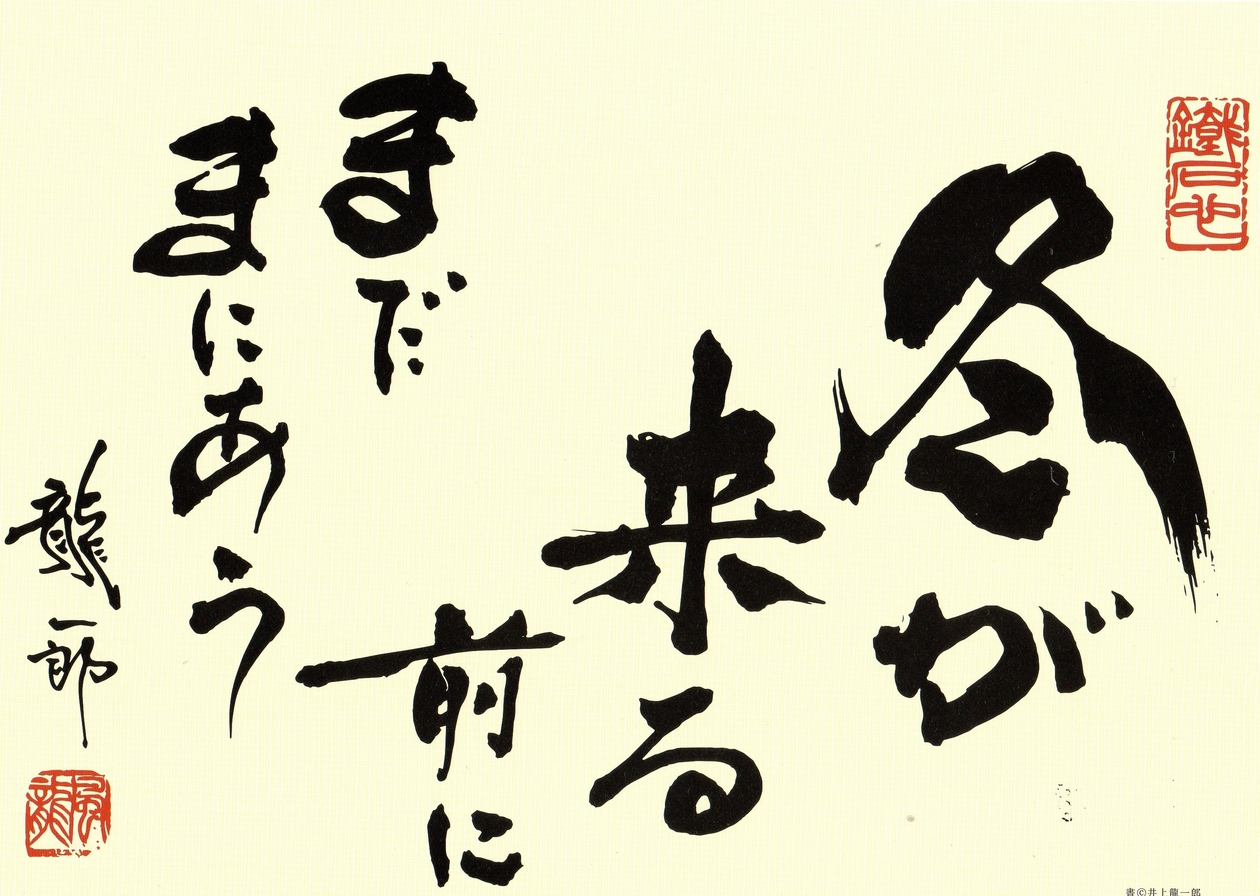 鐵石心
冬が
来る
前に
まだ
まにあう
龍一郎
風龍
書©井上龍一郎